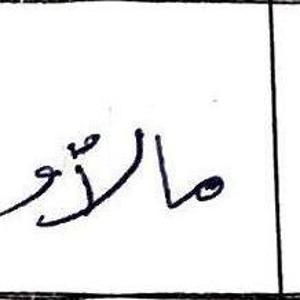 مالاً و